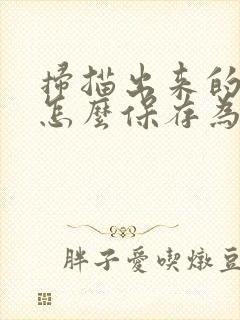 掃描出来的
怎麼保存為
胖子愛喫燉豆